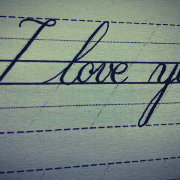 I love yo